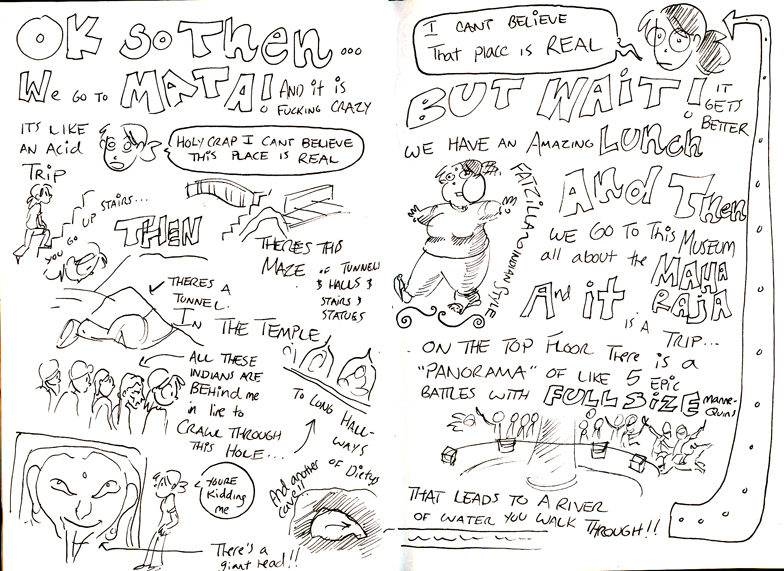 OK SO THEN...
WE GO TO MATA! AND IT IS
FUCKING CRAZY
ITS LIKE
AN ACID
TRIP
HOLY CRAP I CANT BELIEVE
THIS PLACE IS REAL
YOU GO UP STAIRS...
THEN
THERE'S A
TUNNEL.
THERES THIS
MAZE OF TUNNELS
& HALLS &
STAIRS &
STATUES
IN THE TEMPLE
ALL THESE
INDIANS ARE
BEHIND me
in line to
CRAWL THROUGH
THIS HOLE...
TO LONG HALL-
WAYS
OF Dietys
YOU'RE
Kidding
me
There's a
giant head!!
And another
cave!!
THAT LEADS TO A RIVER
OF WATER YOU WALK THROUGH!!
I CANT BELIEVE
That place is REAL
BUT WAIT! IT
GETS
BETTER
WE HAVE AN AMAZING LUNCH
FATZILLA INDIAN STYLE
And Then
WE GO TO This MUSEUM
all about the MAHA
RAJA
And it
is A TRIP...
ON THE TOP FLOOR There is a
"PANORAMA" OF LIKE 5 EPIC
BATTLES WITH FULL SIZE manne-
quins